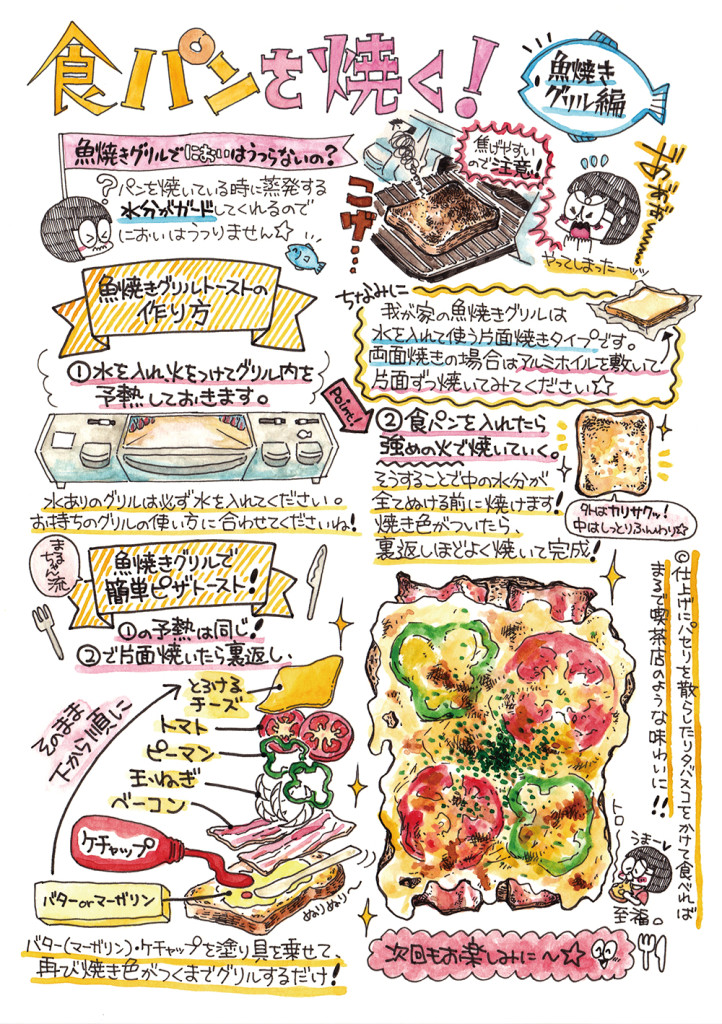 食パンを焼く!
魚焼き
グリル編
魚焼きグリルでにおいはうつらないの?
?パンを焼いている時に蒸発する
水分がガードしてくれるので
においはうつりません☆
焦げやすい
ので注意!
こげ…
やってしまったーッッ
魚焼きグリルトーストの
作り方
①水を入れ、火をつけてグリル内を
予熱しておきます。
水ありのグリルは必ず水を入れてください。
お持ちのグリルの使い方に合わせてくださいね!
ちなみに
我が家の魚焼きグリルは
水を入れて使う片面焼きタイプです。
両面焼きの場合はアルミホイルを敷いて
片面ずつ焼いてみてください☆
Point!
②食パンを入れたら
強めの火で焼いていく。
そうすることで中の水分が
全てぬける前に焼けます!
焼き色がついたら、
裏返しほどよく焼いて完成!
外はカリサクッ!
中はしっとりふんわり☆
まるちゃん流
魚焼きグリルで
簡単ピザトースト!
①の予熱は同じ!
②で片面焼いたら裏返し、
そのまま
下から順に
とろける
チーズ
トマト
ピーマン
玉ねぎ
ベーコン
ケチャップ
バターorマーガリン
ぬりぬり〜
バター(マーガリン)・ケチャップを塗り具を乗せて、
再び焼き色がつくまでグリルするだけ!
◎仕上げにパセリを散らしたりタバスコをかけて食べれば
まるで喫茶店のような味わいに!!
トロ〜
うま〜
至福。
次回もお楽しみに〜☆